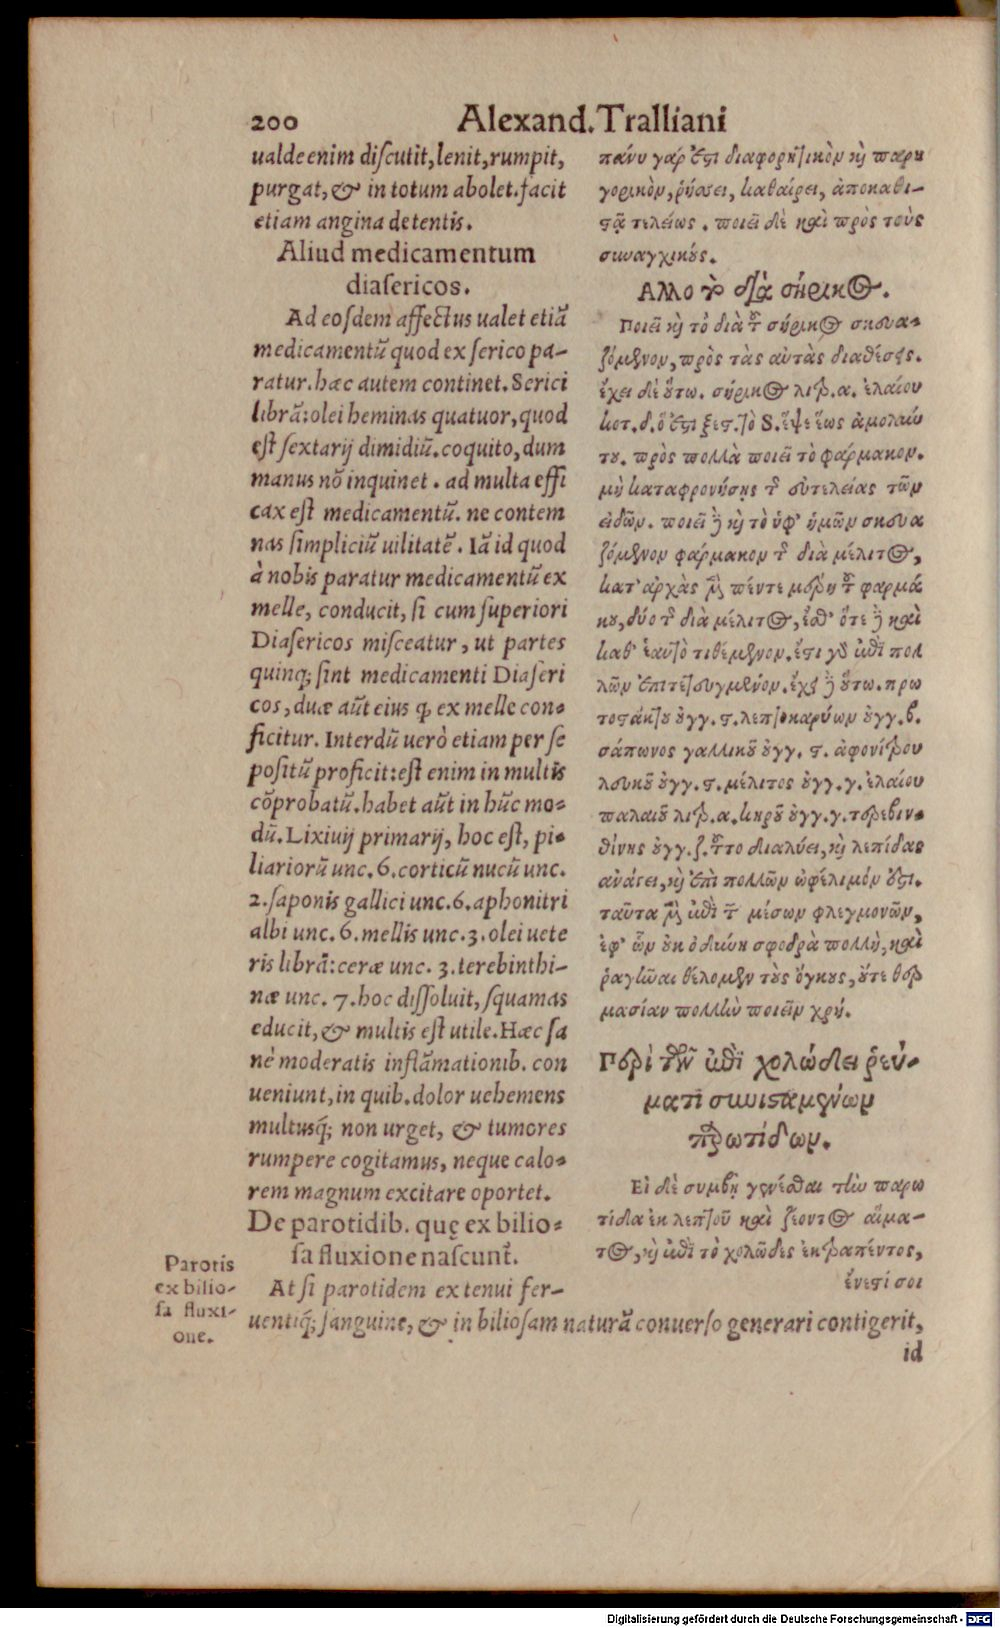 200 Alexand. Tralliani
ualde enim diſcutit, lenit, rumpit,
purgat, & in totum abolet. facit
etiam angina detentis.
Aliud medicamentum
diaſericos.
Ad eoſdem affectus ualet etiā
medicamentū quod ex ſerico pa-
ratur. hæc autem continet. Serici
librā: olei heminas quatuor, quod
eſt ſextarij dimidiū. coquito, dum
manus nō inquinet. ad multa effi
cax eſt medicamentū. ne contem
nas ſimpliciū uilitatē. Iā id quod
à nobis paratur medicamentū ex
melle, conducit, ſi cum ſuperiori
Diaſericos miſceatur, ut partes
quinq; ſint medicamenti Diaſeri
cos, duæ aūt eius ꝙ ex melle con-
ficitur. Interdū uerò etiam per ſe
poſitū proficit: eſt enim in multis
cōprobatū. habet aūt in hūc mo-
dū. Lixiuij primarij, hoc eſt, pi-
liariorū unc. 6. corticū nucū unc.
2. ſaponis gallici unc. 6. aphonitri
albi unc. 6. mellis unc. 3. olei uete
ris librā: ceræ unc. 3. terebinthi-
næ unc. 7. hoc diſſoluit, ſquamas
educit, & multis eſt utile. Hæc ſa
nè moderatis inflāmationib. con
ueniunt, in quib. dolor uehemens
multusq́; non urget, & tumores
rumpere cogitamus, neque calo-
rem magnum excitare oportet.
De parotidib. quę ex bilio-
ſa fluxione naſcunt᷑.
At ſi parotidem ex tenui fer-
uentiq́; ſanguine, & in bilioſam naturā conuerſo generari contigerit,
id
Parotis
ex bilio-
ſa fluxi-
one.
πάνυ γάρ ἐστι διαφορητικὸν κỳ παρη
γορικὸν, ῥήσσει, καθαίρει, ἀποκαθι-
στᾷ τελείως. ποιεῖ δὲ καὶ πρὸς τοὺς
συναγχικούς.
Αλλο τὸ διὰ σήρικος.
Ποιεῖ κỳ τὸ διὰ τοῦ σήρικος σκευα-
ζόμενον, πρὸς τὰς αὐτὰς διαθέσεις.
ἔχει δὲ οὕτω. σήρικος λιτρ. α. ἐλαίου
κοτ. δ. ὅ ἐστι ξεστ. τὸ S. ἕψε ἕως ἀμολύν
του. πρὸς πολλὰ ποιεῖ τὸ φάρμακον.
μὴ καταφρονήσῃς τῆς εὐτελείας τῶν
εἰδῶν. ποιεῖ δὲ κỳ τὸ ὑφ' ἡμῶν σκευα
ζόμενον φάρμακον τὸ διὰ μέλιτος,
κατ' ἀρχὰς μὲν πέντε μέρη τοῦ φαρμά
κου, δύο τοῦ διὰ μέλιτος, ἔσθ' ὅτε δὲ καὶ
καθ' ἑαυτὸ τιθέμενον. ἔστι γὰρ ἐπὶ πολ
λῶν ἐπιτετευγμένον. ἔχει δὲ οὕτω. πρω
τοστάκτου οὐγγ. ϛ. λεπτοκαρύων οὐγγ. β.
σάπωνος γαλλικοῦ οὐγγ. ϛ. ἀφονίτρου
λευκοῦ οὐγγ. ϛ. μέλιτος οὐγγ. γ. ἐλαίου
παλαιοῦ λιτρ. α. κηροῦ οὐγγ. γ. τερεβιν-
θίνης οὐγγ. ζ. τοῦτο διαλύει, κỳ λεπίδας
ἀνάγει, κỳ ἐπὶ πολλῶν ὠφέλιμόν ἐστι.
ταῦτα μὲν ἐπὶ τῶν μέσων φλεγμονῶν,
ἐφ' ὧν οὐκ ὀδύνη σφοδρὰ πολλὴ, καὶ
ῥαγῆναι θέλομεν τοὺς ὄγκους, οὔτε θερ
μασίαν πολλὴν ποιεῖν χρή.
Περὶ τῶν ἐπὶ χολώδει ῥεύ-
ματι συνισταμένων
παρωτίδων.
Εἰ δὲ συμβῇ γενέσθαι τὴν παρω
τίδα ἐκ λεπτοῦ καὶ ζέοντος αἵμα-
τος, κỳ ἐπὶ τὸ χολῶδες ἐκτραπέντος,
ἔνεστί σοι
Digitalisierung gefördert durch die Deutsche Forschungsgemeinschaft - DFG